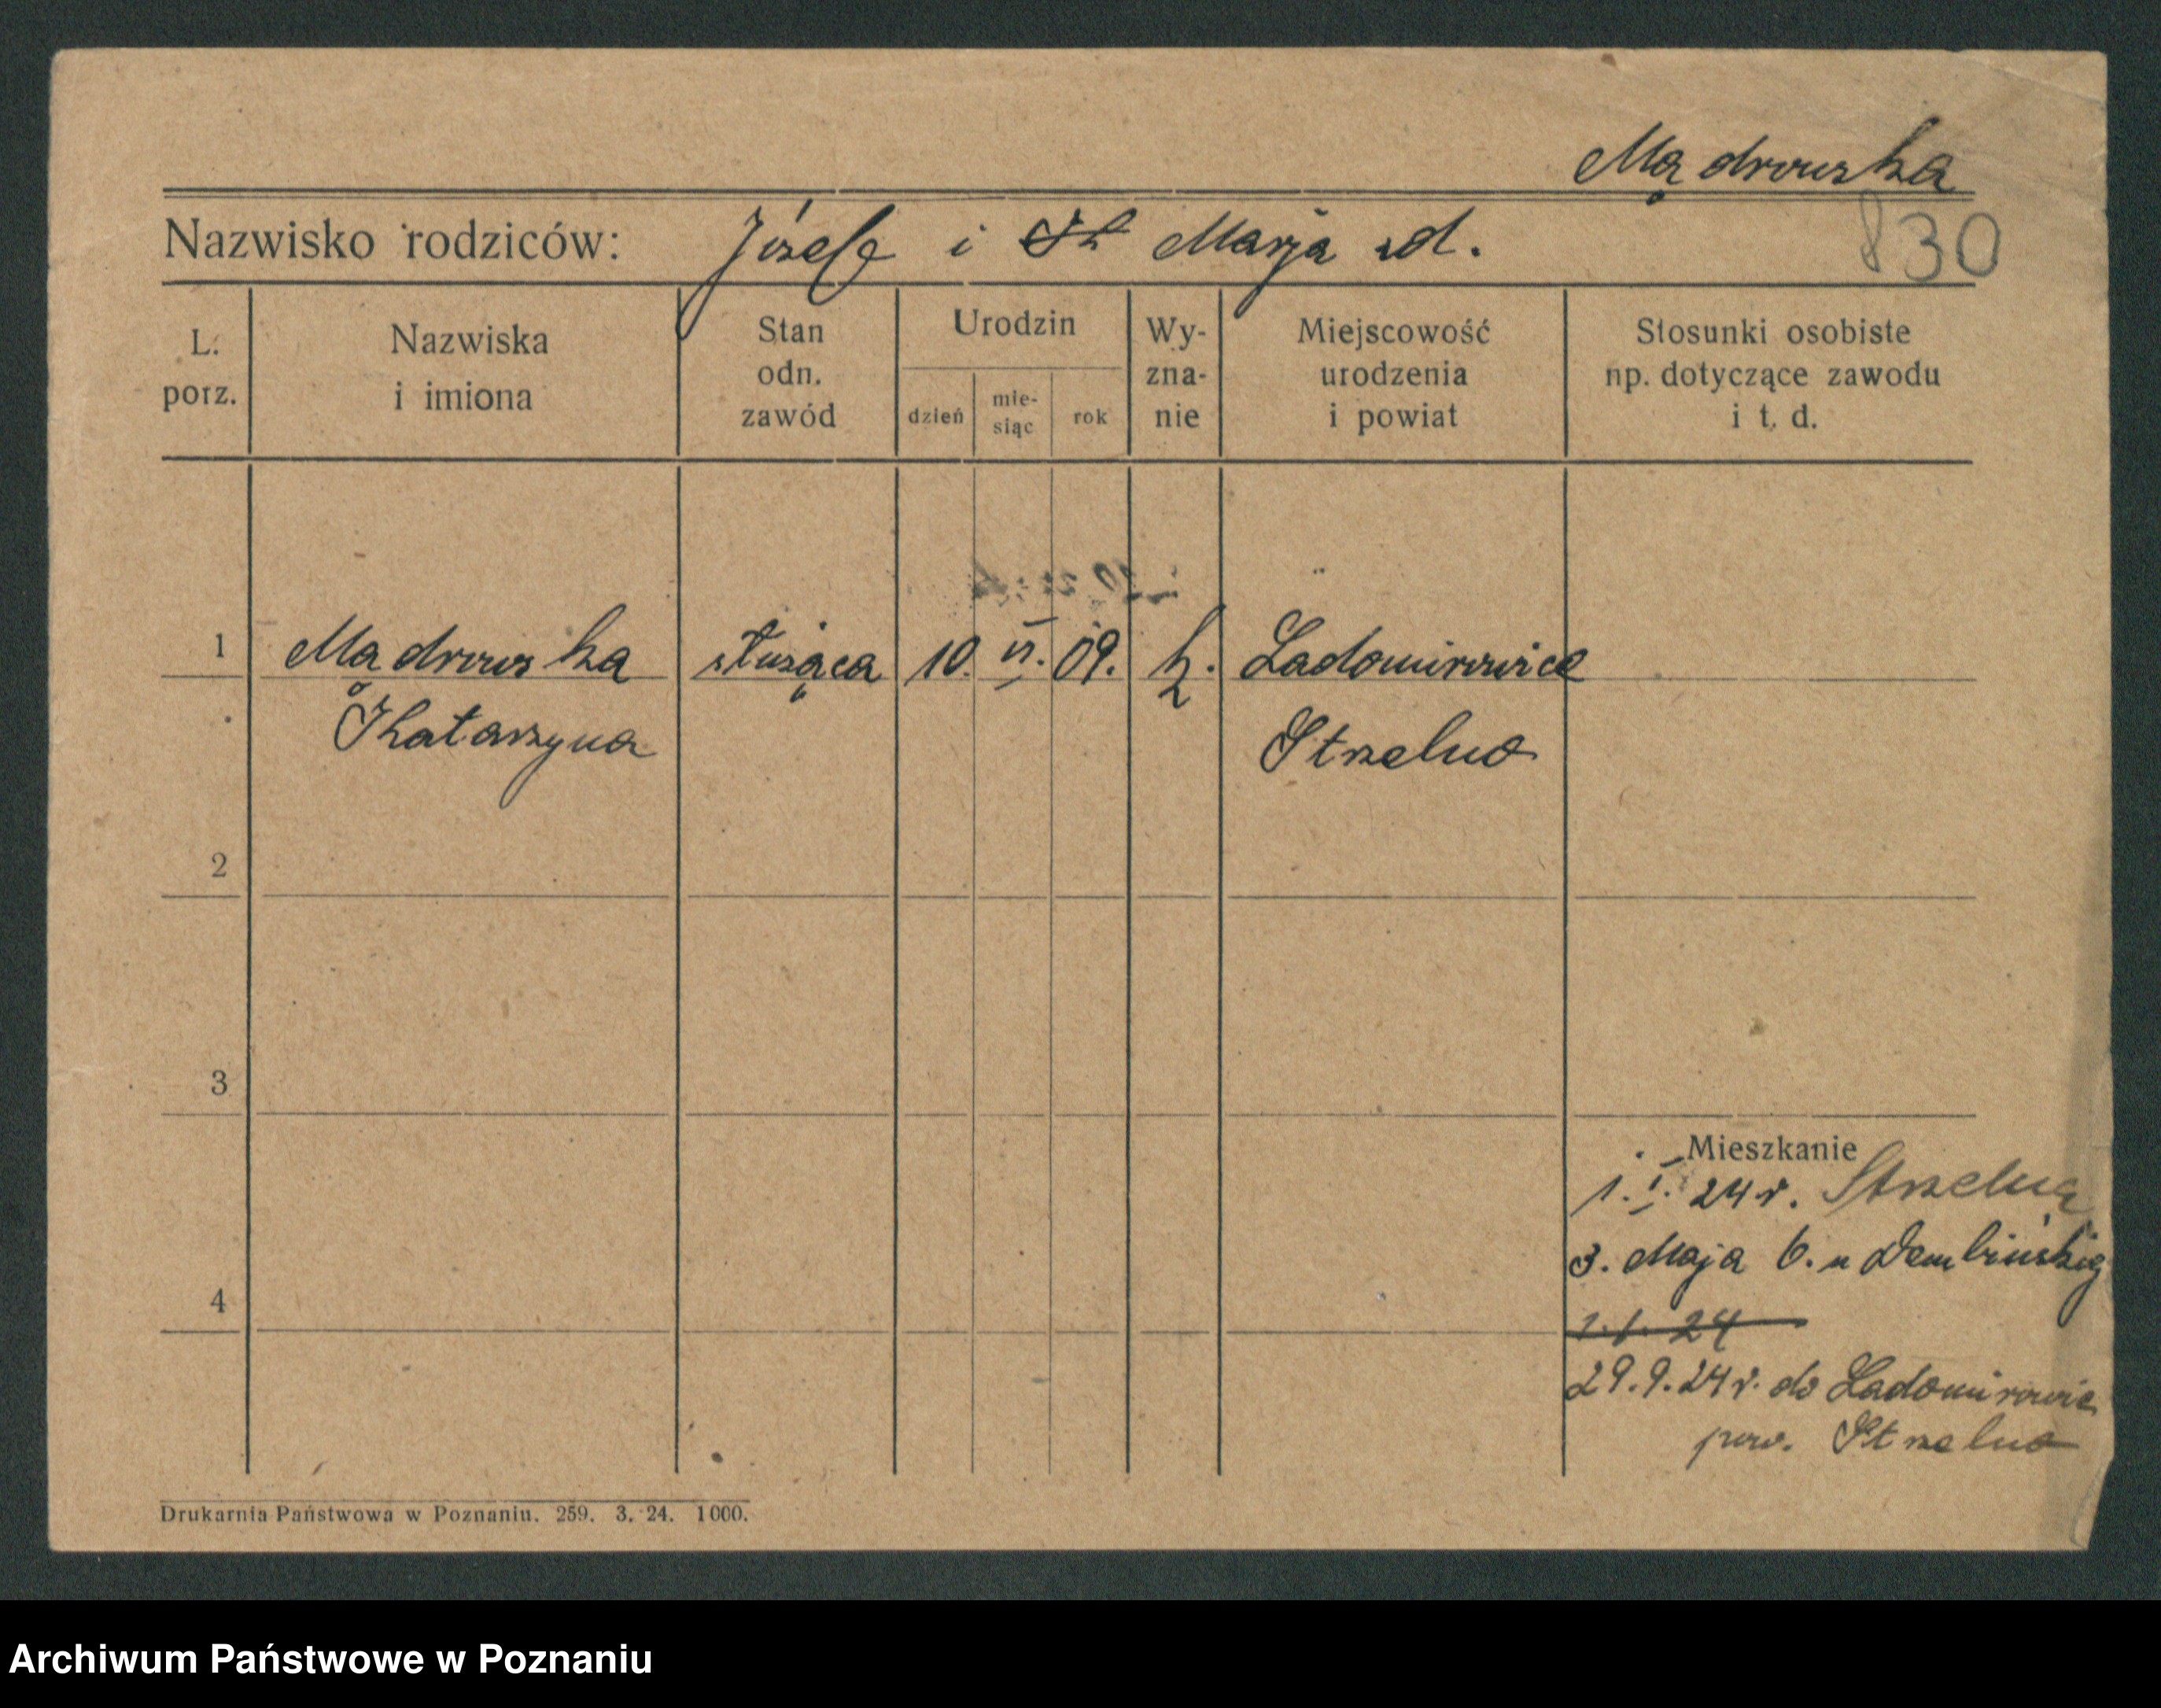 Mądrowska
Nazwisko rodziców: Józef i Marja zd.
830
L. porz.
Nazwiska i imiona
Stan odn. zawód
Urodzin
dzień
mie-siąc
rok
Wy-zna-nie
Miejscowość urodzenia i powiat
Stosunki osobiste np. dotyczące zawodu i t. d.
1 Mądrowska służąca 10. VI. 09. k. Ladomirowice
Katarzyna Strzelno
2
3
Mieszkanie
1. I. 24 r. Strzelno
3. Maja 6. u Dembińskieg
4
1. 1. 24
29. 9. 24 r. do Ladomirowic
pow. Strzelno
Drukarnia Państwowa w Poznaniu. 259. 3. 24. 1000.
Archiwum Państwowe w Poznaniu